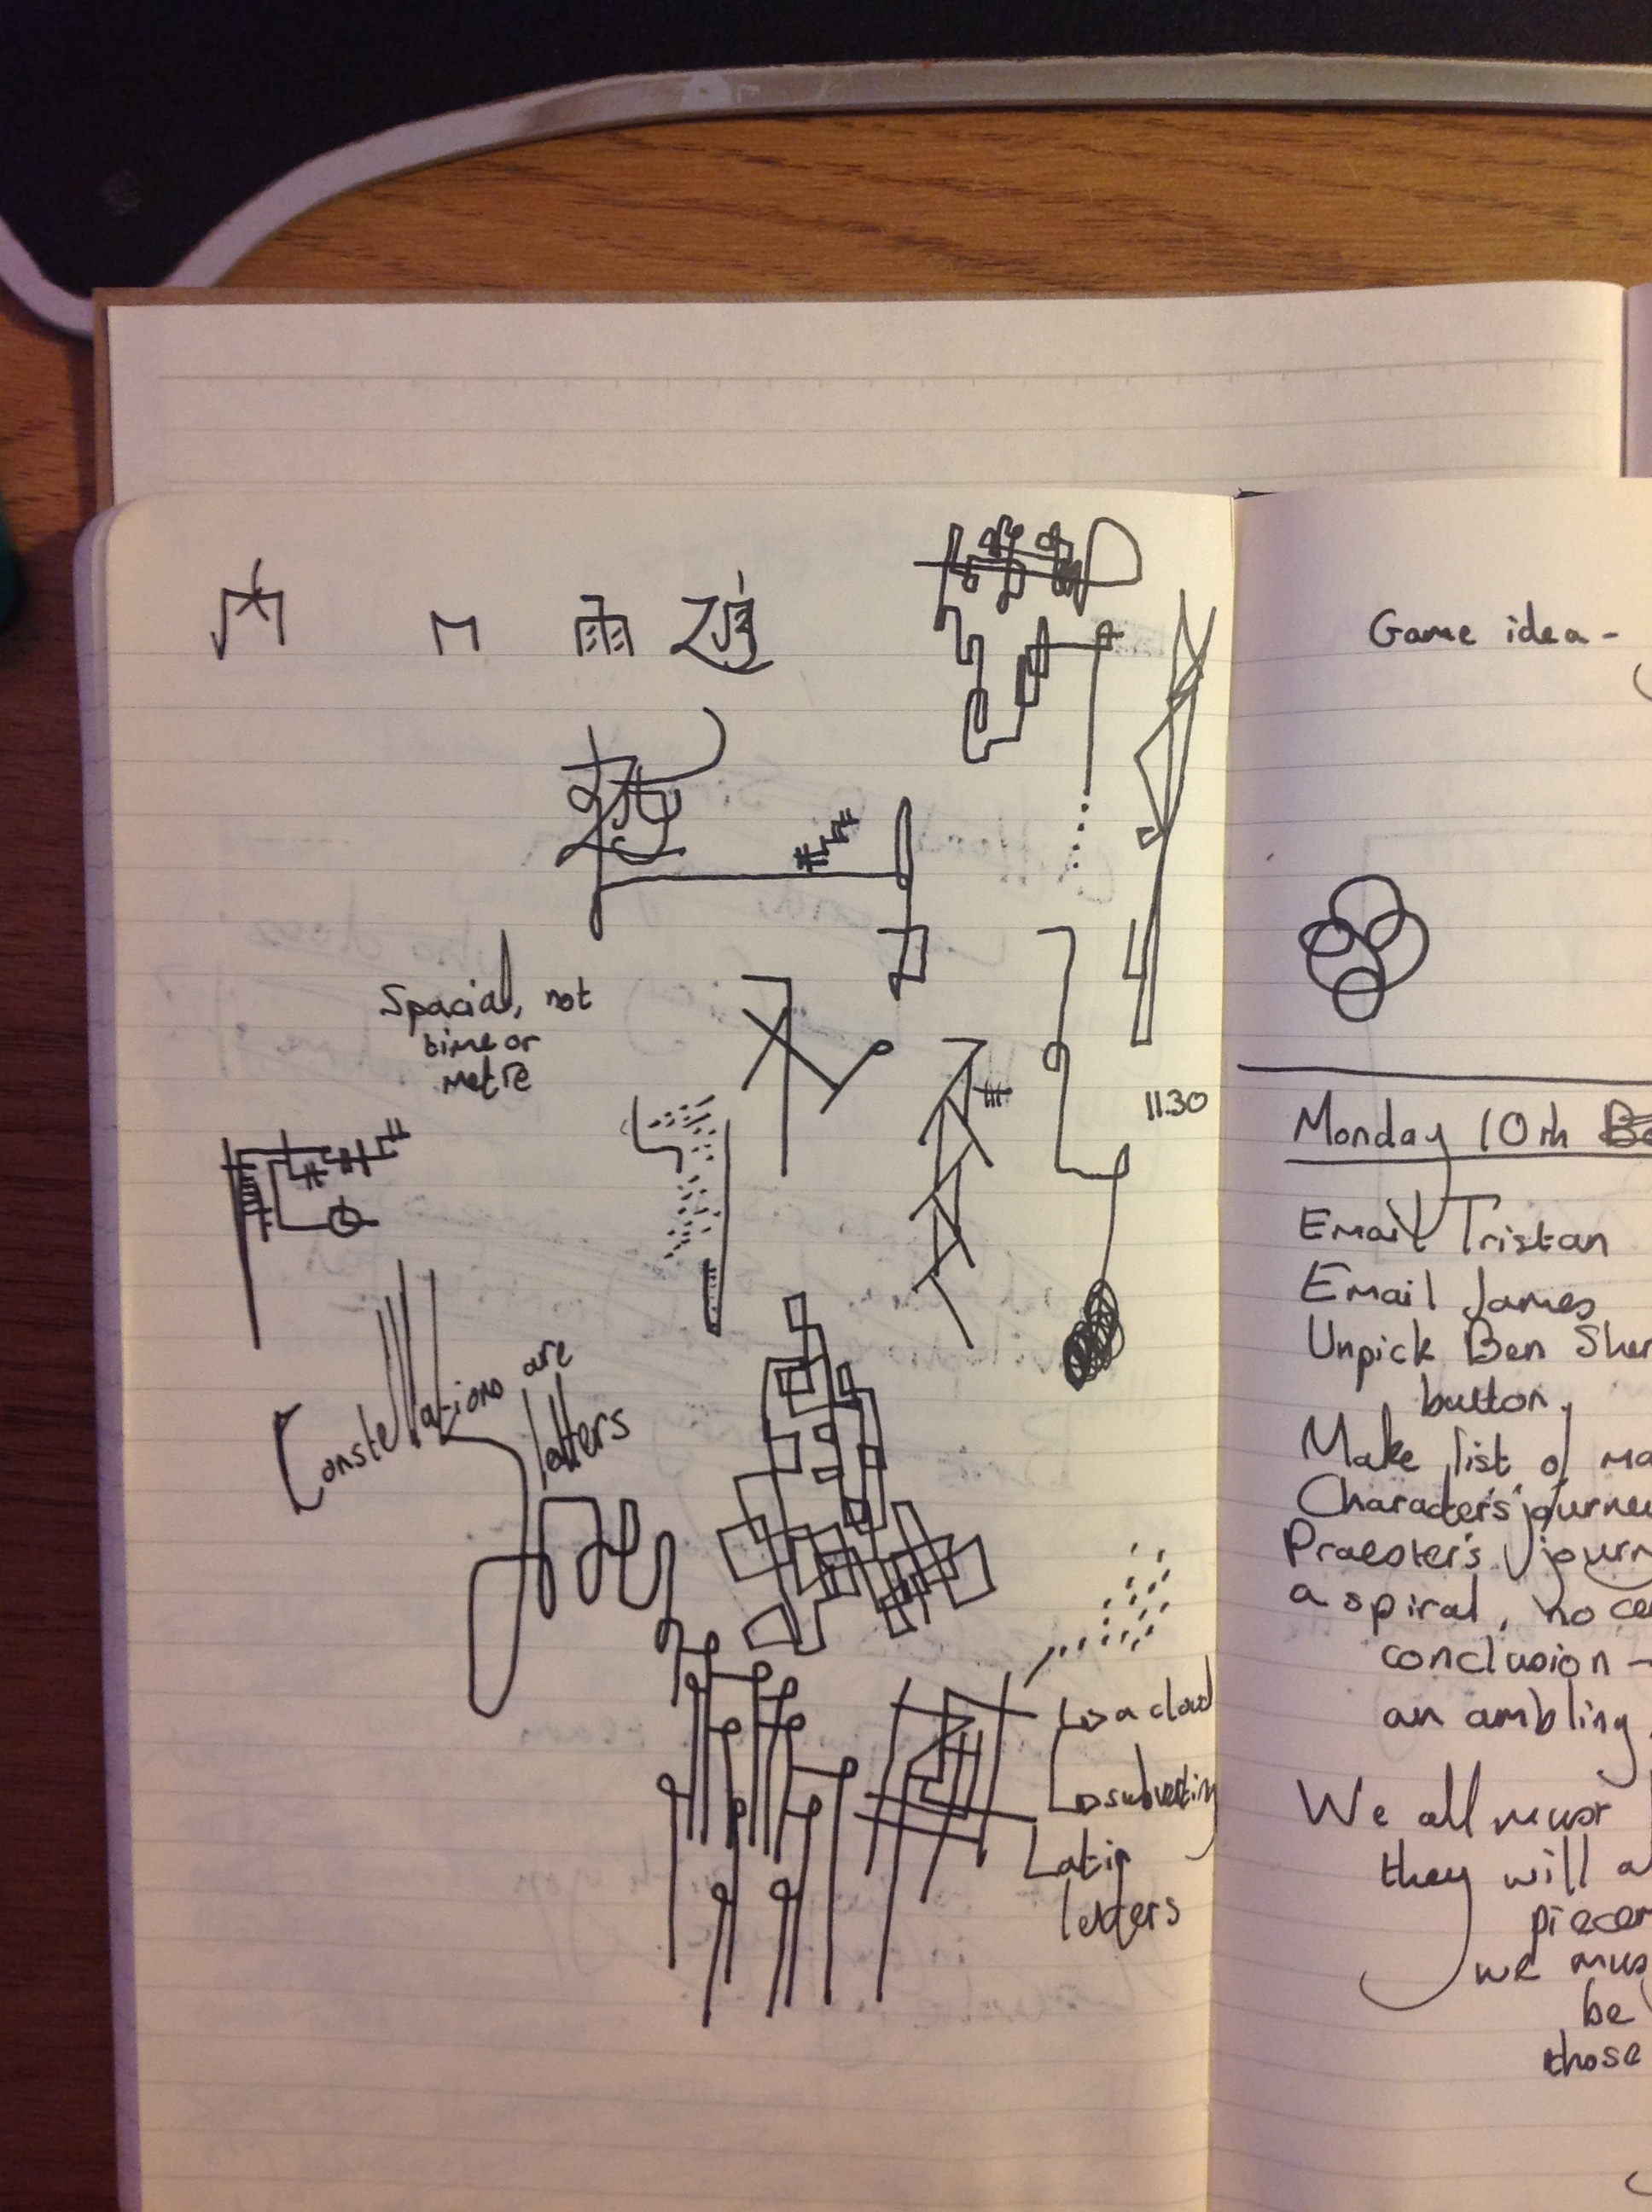 Spacial, not
time or
metre
11.30
Constellations are
letters
a cloud
subverting
Latin
letters
Game idea -
Monday 10th
Email Tristan
Email James
Unpick Ben Sher
button.
Make list of ma
Character's journe
Praester's journ
a spiral, no ce
conclusion -
an ambling
We all must
they will a
piecem
we mus
be
those